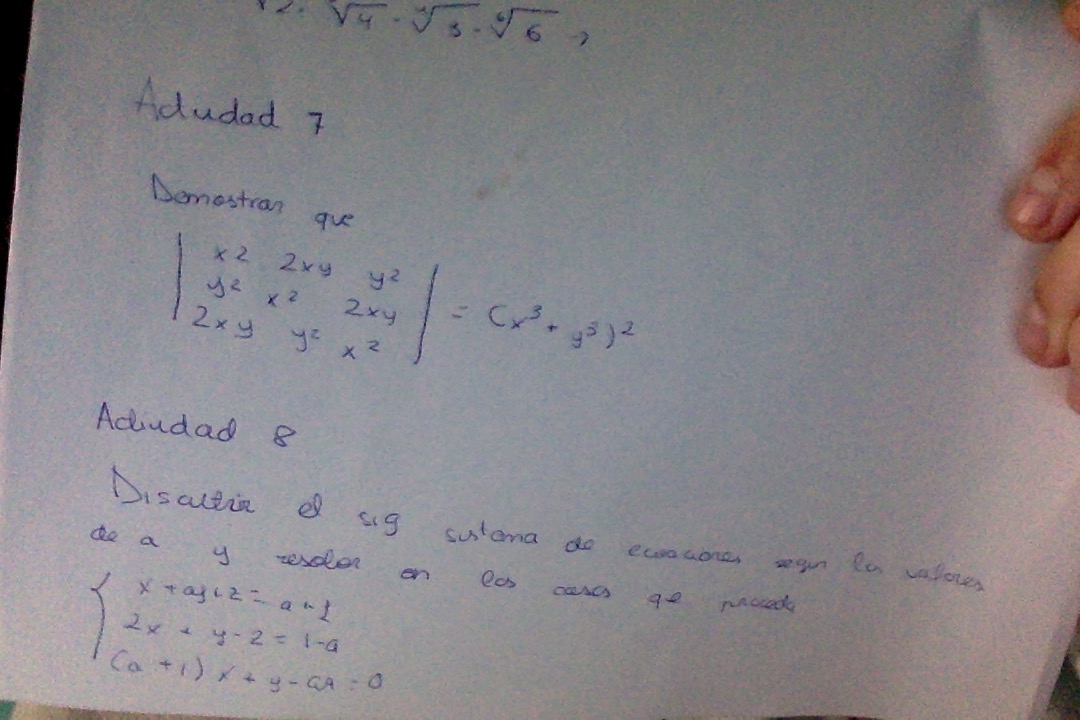 √2. √4 . √3 . ⁶√6 ,
Actividad 7
Demostrar que
| x2 2xy y² |
| y² x² 2xy | = (x³ + y³)²
| 2xy y² x² |
Actividad 8
Discutir el sig sistema de ecuaciones segun los valores
de a y resolver en los casos qe proceda
x + ay + z = a + 1
2x + y - z = 1-a
(a +1) x + y - az = 0